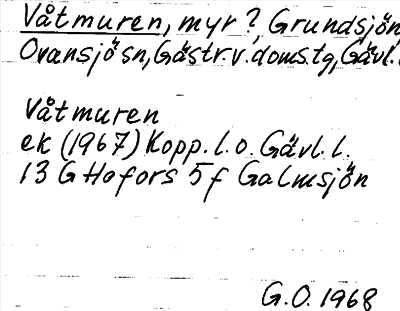 Våtmuren, myr?, Grundsjön
Ovansjö sn, Gästr.v.doms.tg, Gävl.l.
Våtmuren
ek (1967) Kopp.l.o. Gävl.l.
13 G Hofors 5f Galmsjön
G.O. 1968